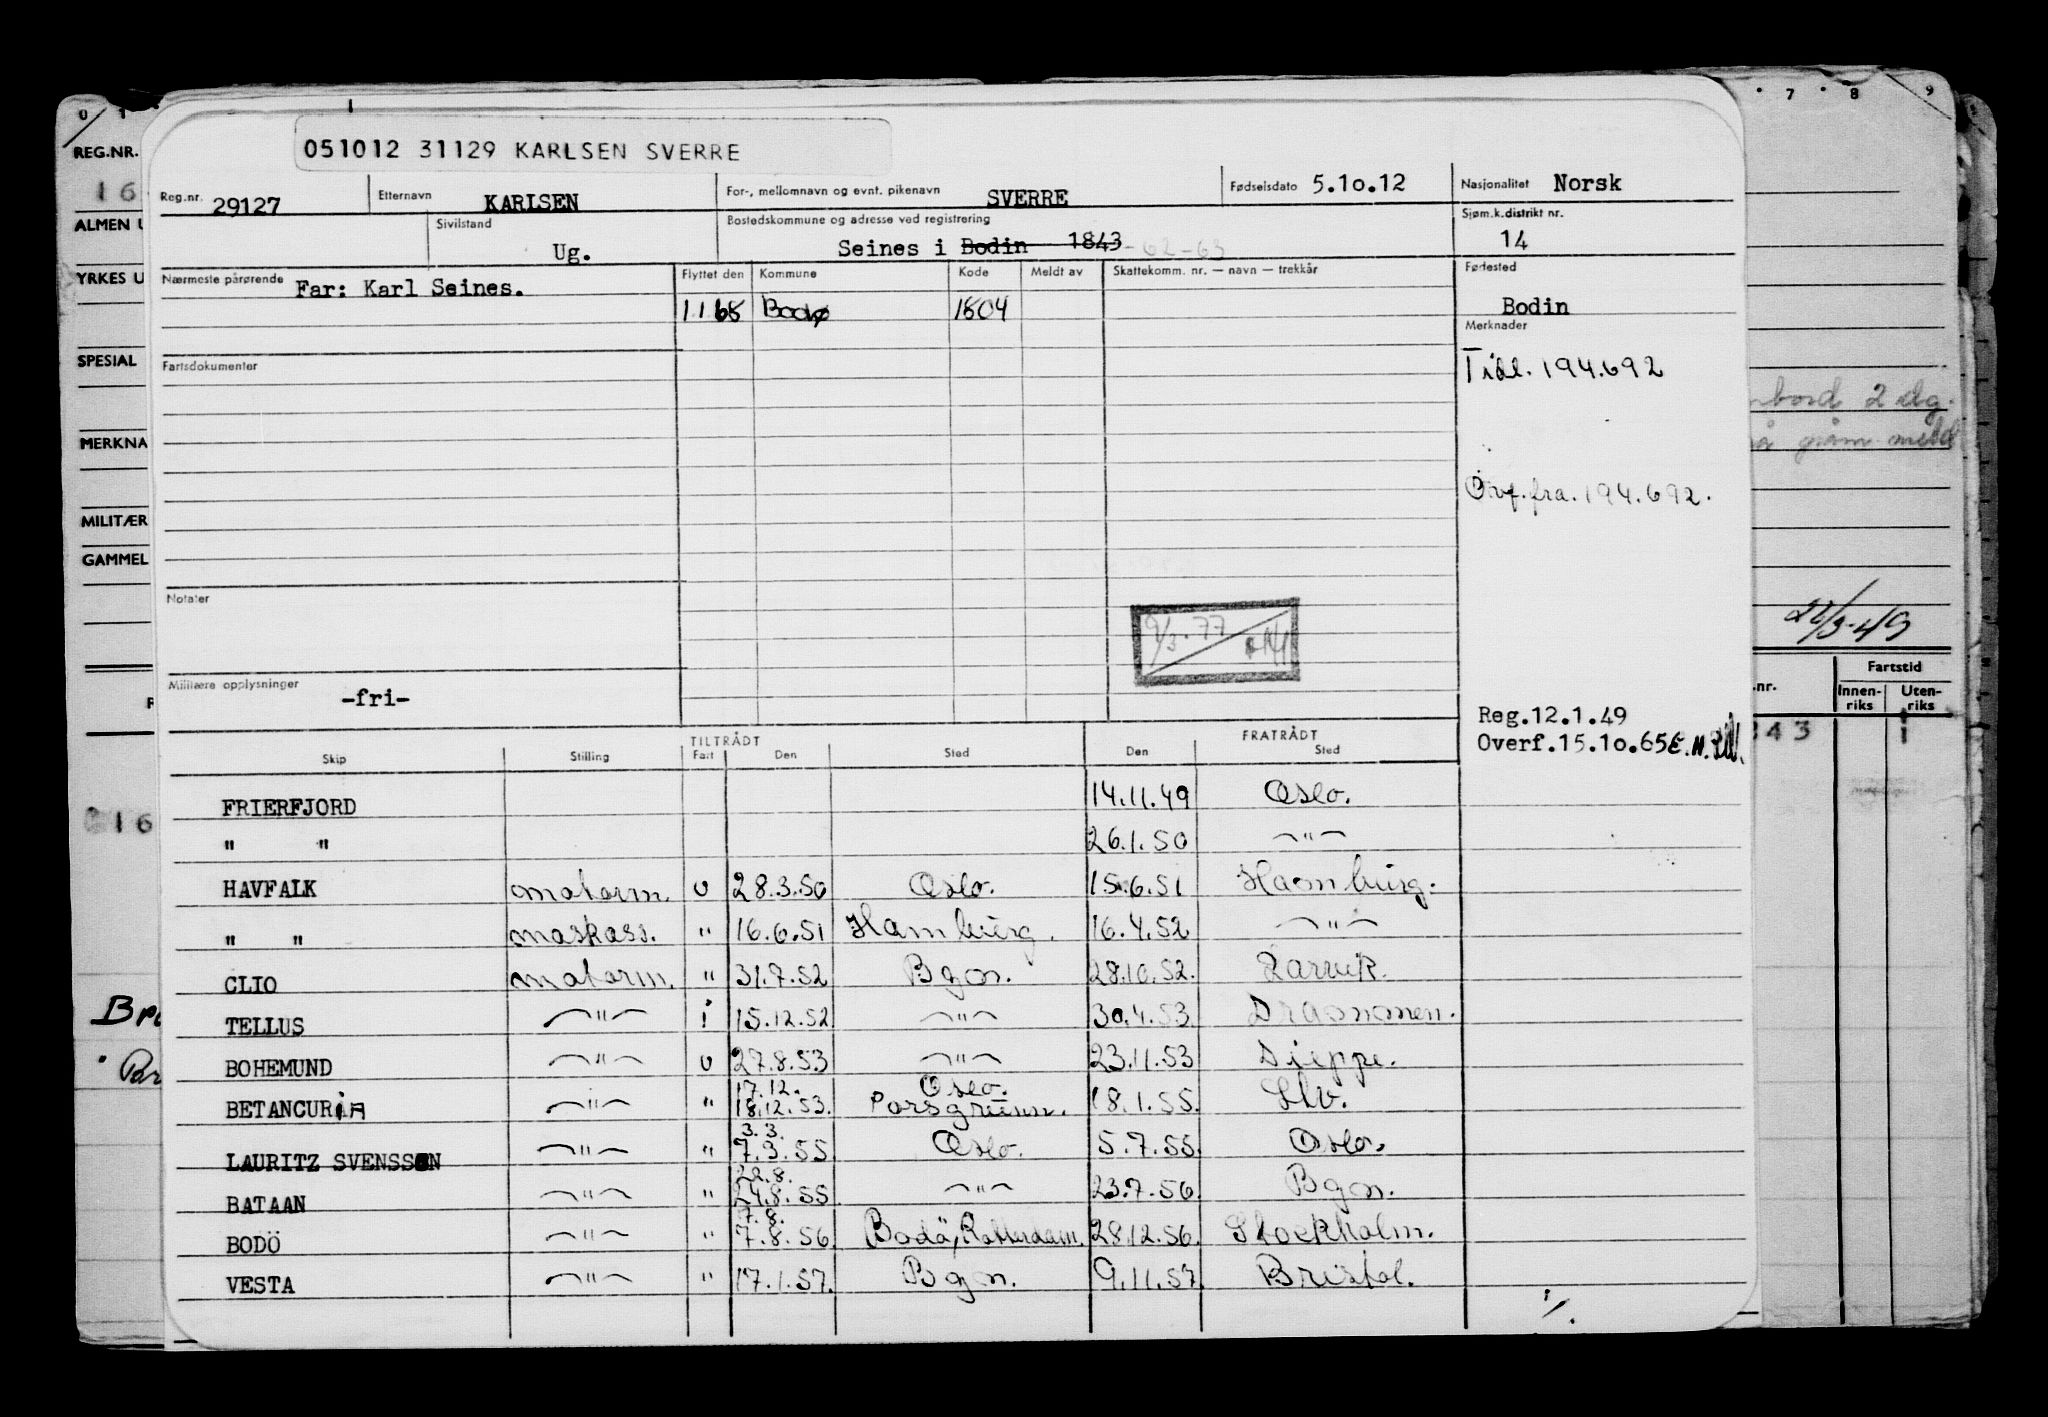 0 1 7 8 9
051012 31129 KARLSEN SVERRE
REG.NR.
16
Reg.nr. 29127 Etternavn KARLSEN For-, mellomnavn og evnt. pikenavn SVERRE Fødselsdato 5.1o.12 Nasjonalitet Norsk
ALMEN U
Sivilstand Ug. Bostedskommune og adresse ved registrering Seines i Bodin 1843 -62-63 Sjøm.k.distrikt nr. 14
YRKES U
Nærmeste pårørende Far: Karl Seines. Flyttet den Kommune Kode Meldt av Skattekomm. nr. — navn — trekkår Fødested
1 1 68 Bodø 1804 Bodin
Merknader
SPESIAL
Fartsdokumenter
Tidl. 194.692
nbord 2 dg.
MERKNA
Ovf. fra. 194.692.
MILITÆR
GAMMEL
Notater
9/3.77
22/3-49
Militære opplysninger -fri-
Fartstid
.nr. Innen-riks Uten-riks
Reg.12.1.49
Overf.15.1o.65
43 1
TILTRÅDT FRATRÅDT
Skip Stilling Fart Den Sted Den Sted
FRIERFJORD 14.11.49 Oslo.
" " 26.1.50 -"-
16
HAVFALK motorm. u 28.3.50 Oslo. 15.6.51 Hamburg.
" " maskass. " 16.6.51 Hamburg. 16.4.52 -"-
CLIO motorm. " 31.7.52 Bgn. 28.10.52. Larvik.
TELLUS -"- i 15.12.52 -"- 30.4.53. Drammen.
BOHEMUND -"- u 27.8.53 -"- 23.11.53 Dieppe.
BETANCURIA -"- " 17.12. 18.12.53. Oslo. Porsgrunn. 18.1.55. Slv.
LAURITZ SVENSSON -"- " 3.3. 7.3.55 Oslo. 5.7.55 Oslo.
BATAAN -"- " 22.8. 24.8.55 -"- 23.7.56. Bgn.
BODÖ -"- " 7.8. 7.8.56. Bodö, Rotterdam. 28.12.56. Stockholm.
VESTA -"- " 17.1.57. Bgn. 9.11.57. Bristol.